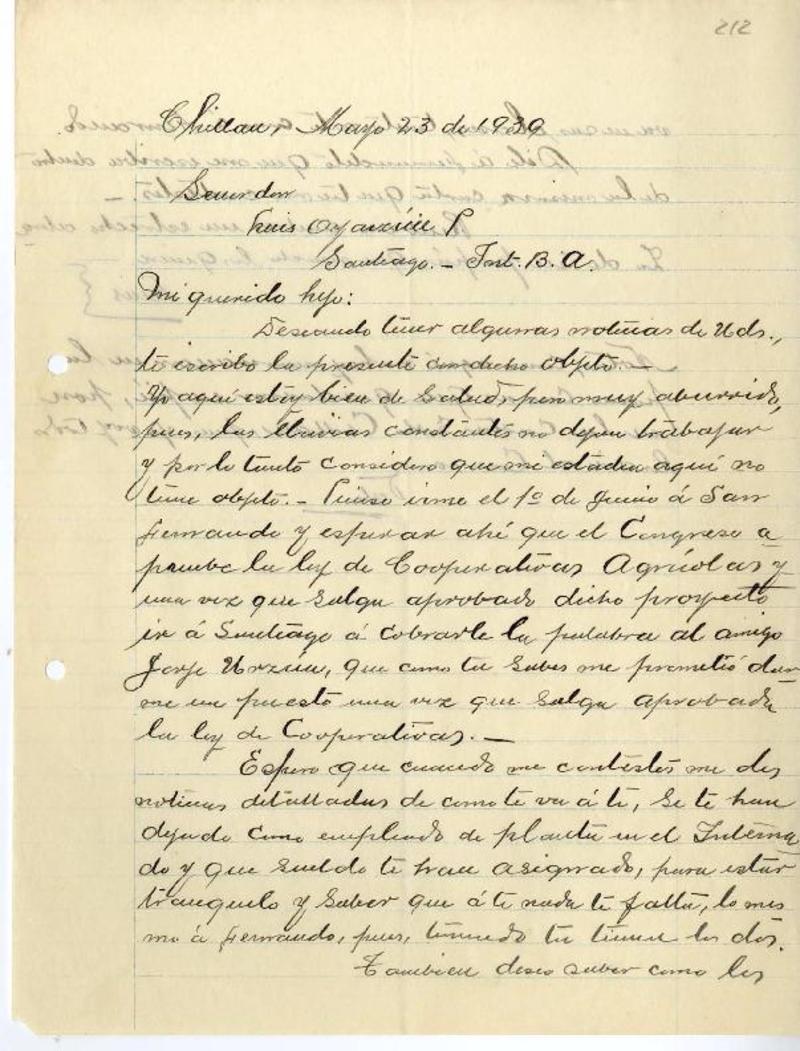 212
Chillan, Mayo 23 de 1939
Señor don
Luis Oyarzún P
Santiago. - Int. B. A.
Mi querido hijo:
Deseando tener algunas noticias de Uds.,
te escribo la presente con dicho objeto. -
Yo aquí estoy bien de salud, pero muy aburrido,
pues, las lluvias constantes no dejan trabajar
y por lo tanto considero que mi estadia aquí no
tiene objeto. - Pienso irme el 1º de Junio á San
Fernando y esperar ahí que el Congreso a
pruebe la ley de Cooperativas Agrícolas y
una vez que salga aprobado dicho proyecto
ir á Santiago á cobrarle la palabra al amigo
Jorje Urzúa, que como tu sabes me prometió dar
me un puesto una vez que salga aprobada
la ley de Cooperativas. -
Espero que cuando me contestes me des
noticias detalladas de como te va á ti, se te han
dejado como empleado de planta en el Interna
do y que sueldo te han asignado, para estar
tranquilo y saber que á ti nada te falta, lo mis
mo á Fernando, pues, teniendo tu tienen los dos.
Tambien deseo saber como les